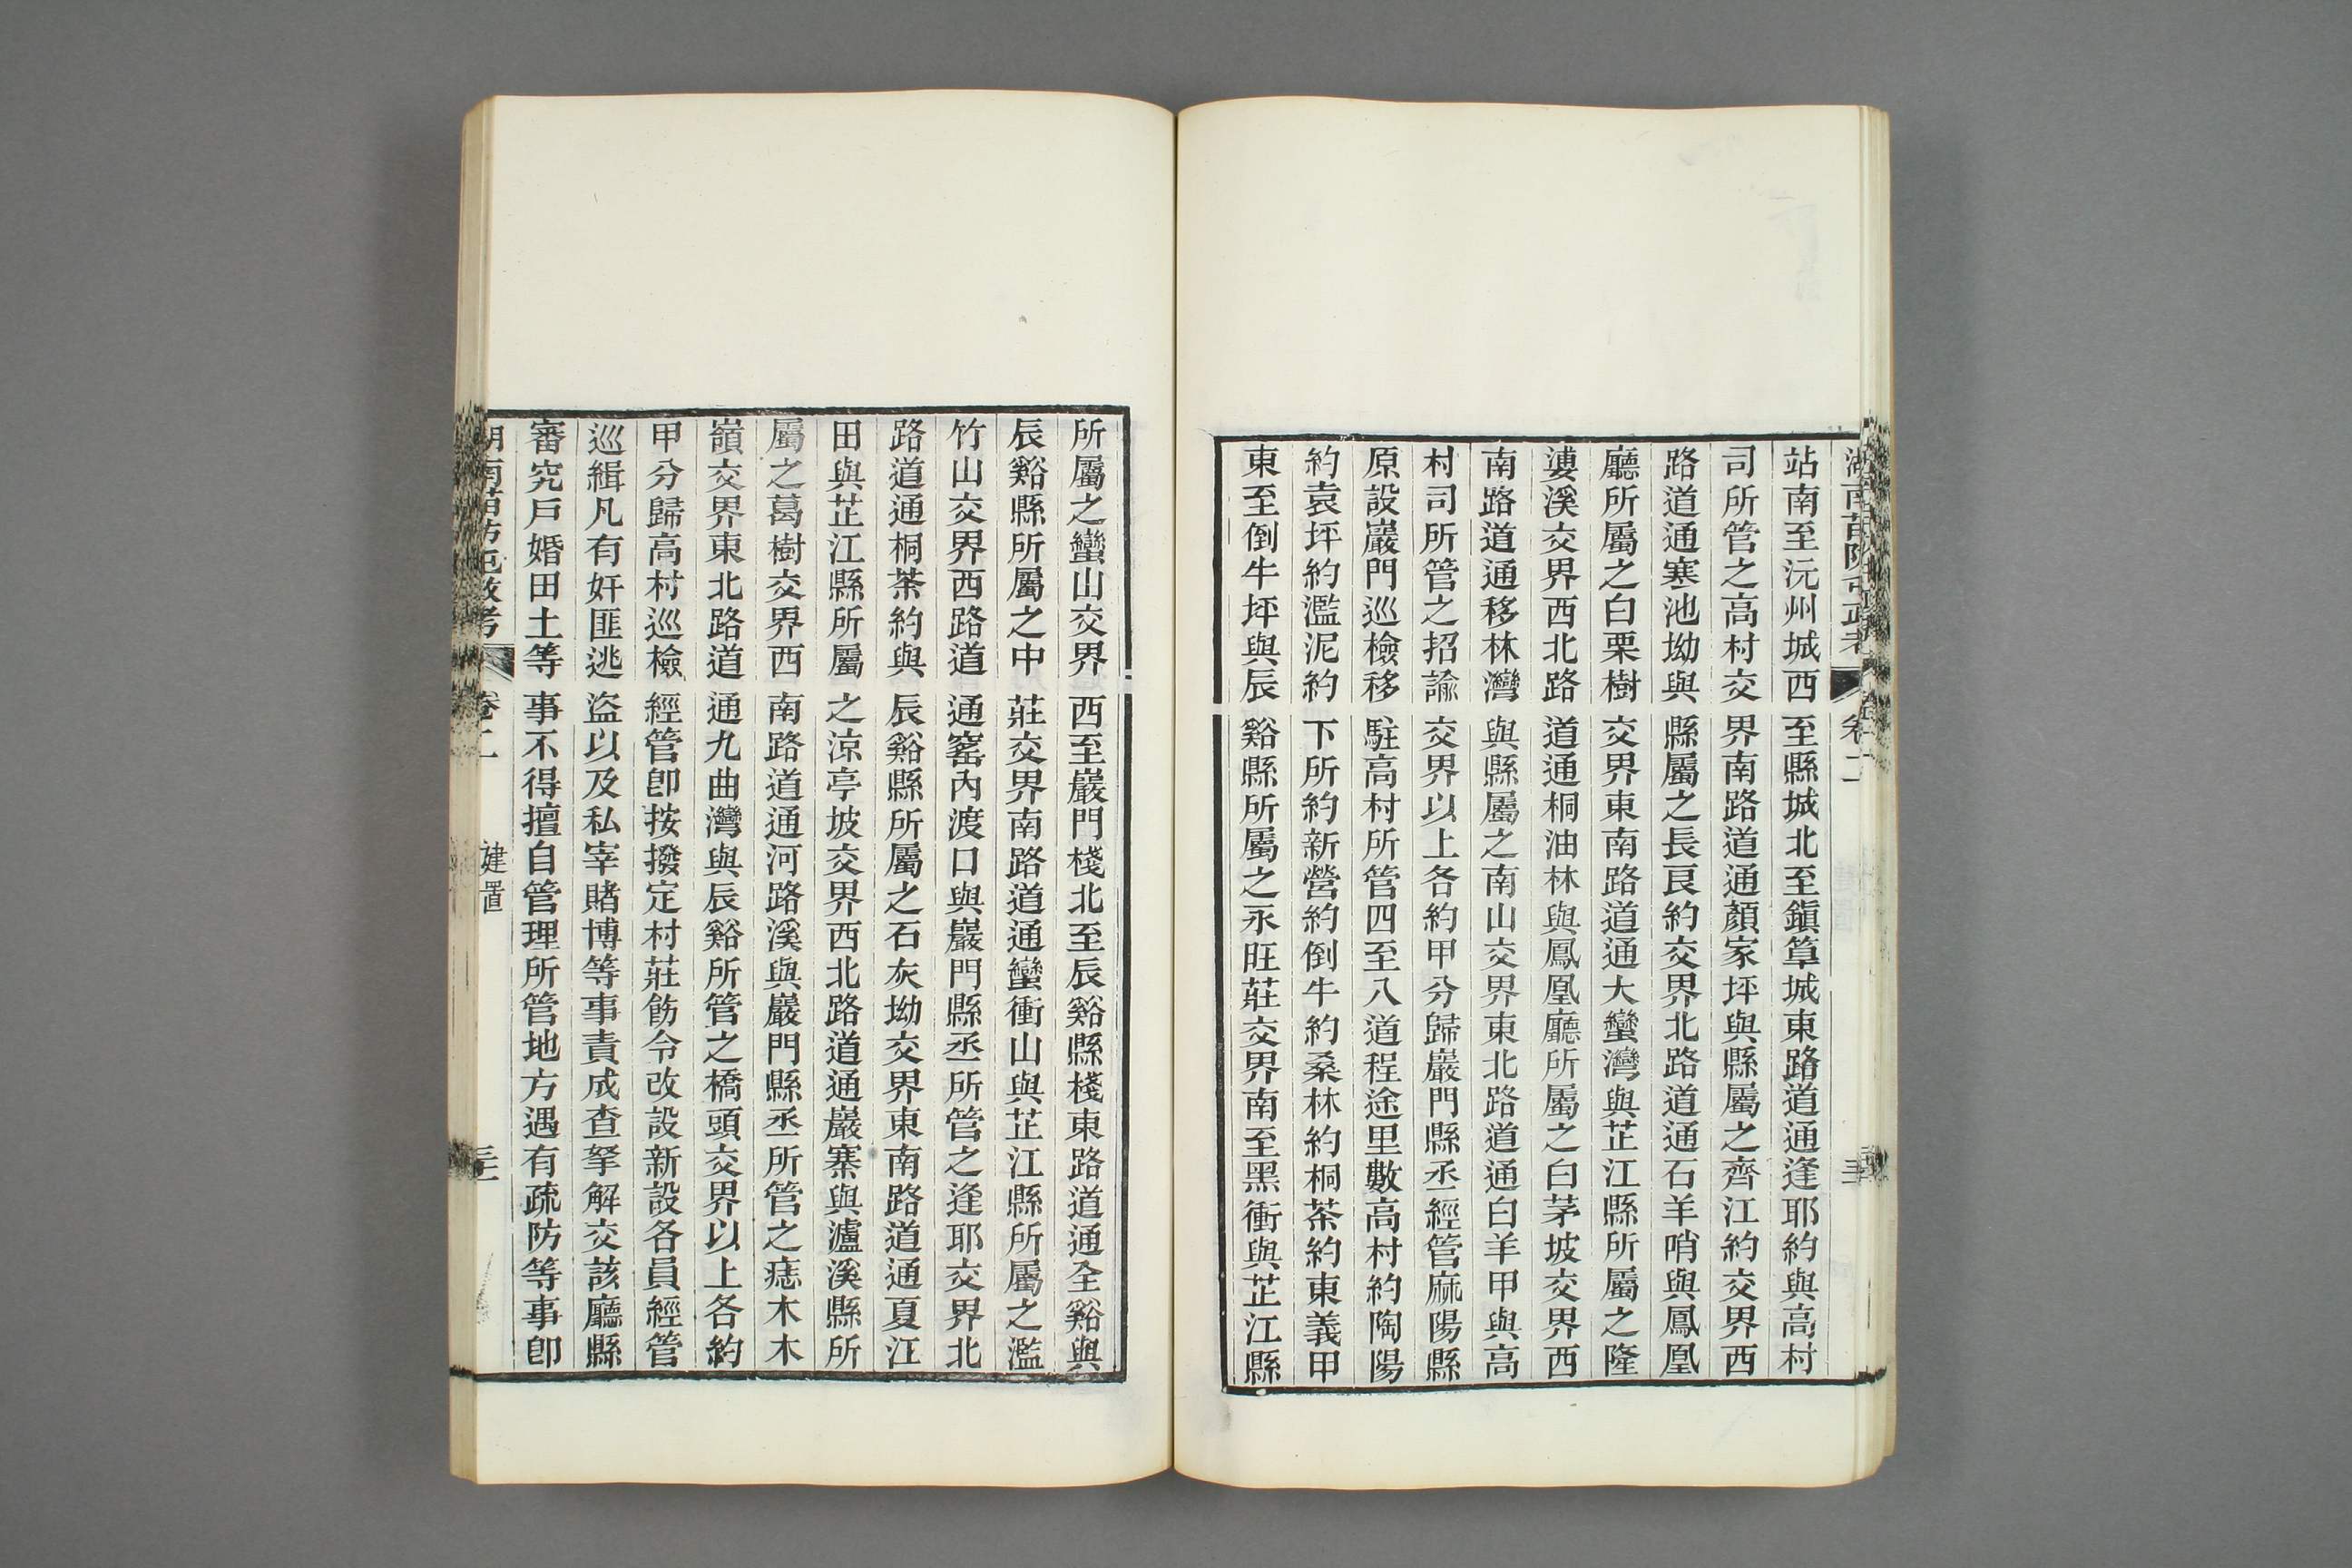 湖南苗防屯政考 卷二 三
站南至沅州城西至縣城北至鎭筸城東路道通逢耶約與高村
司所管之高村交界南路道通顏家坪與縣屬之齊江約交界西
路道通寨池坳與縣屬之長艮約交界北路道通石羊哨與鳳凰
廳所屬之白栗樹交界東南路道通大蠻灣與芷江縣所屬之隆
婁溪交界西北路道通桐油林與鳳凰廳所屬之白茅坡交界西
南路道通移林灣與縣屬之南山交界東北路道通白羊甲與高
村司所管之招諭交界以上各約甲分歸巖門縣丞經管麻陽縣
原設巖門巡檢移駐高村所管四至八道程途里數高村約陶陽
約袁坪約濫泥約下所約新營約倒牛約桑林約桐茶約東義甲
東至倒牛坪與辰谿縣所屬之永旺莊交界南至黑衝與芷江縣
所屬之蠻山交界西至巖門棧北至辰谿縣棧東路道通全谿與
辰谿縣所屬之中莊交界南路道通蠻衝山與芷江縣所屬之濫
竹山交界西路道通窰內渡口與巖門縣丞所管之逢耶交界北
路道通桐茶約與辰谿縣所屬之石灰坳交界東南路道通夏江
田與芷江縣所屬之涼亭坡交界西北路道通巖寨與瀘溪縣所
屬之葛樹交界西南路道通河路溪與巖門縣丞所管之痣木木
嶺交界東北路道通九曲灣與辰谿所管之橋頭交界以上各約
甲分歸高村巡檢經管卽按撥定村莊飭令改設新設各員經管
巡緝凡有奸匪逃盜以及私宰賭博等事責成查拏解交該廳縣
審究戶婚田土等事不得擅自管理所管地方遇有疏防等事卽
湖南苗防屯政考 卷二 建置